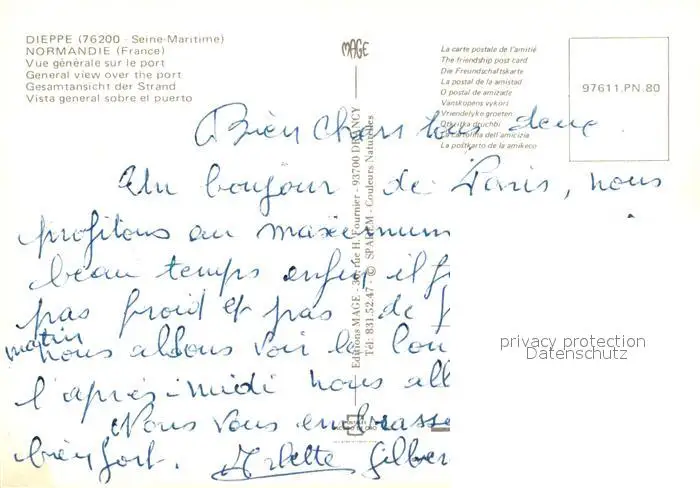 DIEPPE (76200 - Seine-Maritime)
NORMANDIE (France)
Vue générale sur le port
General view over the port
Gesamtansicht der Strand
Vista general sobre el puerto
MAGE
La carte postale de l'amitié
The friendship post card
Die Freundschaftskarte
La postal de la amistad
O postal de amizade
Vänskapens vykort
Vriendelyke groeten
Otkritka druchbi
La cartolina dell'amicizia
La postkarto de la amikeco
97611.PN.80
Editions MAGE - rue H. Fournier - 93700 DRANCY
Tél: 831.52.47 - © SPADEM - Couleurs Naturelles
Bien Chers tous deux
Un bonjour de Paris, nous
profitons au maximum
beau temps enfin il f
pas froid et pas de
matin
nous allons voir le Lou
l'après-midi nous all
Nous vous embrasse
bien fort. Arlette Gilber
privacy protection
Datenschutz